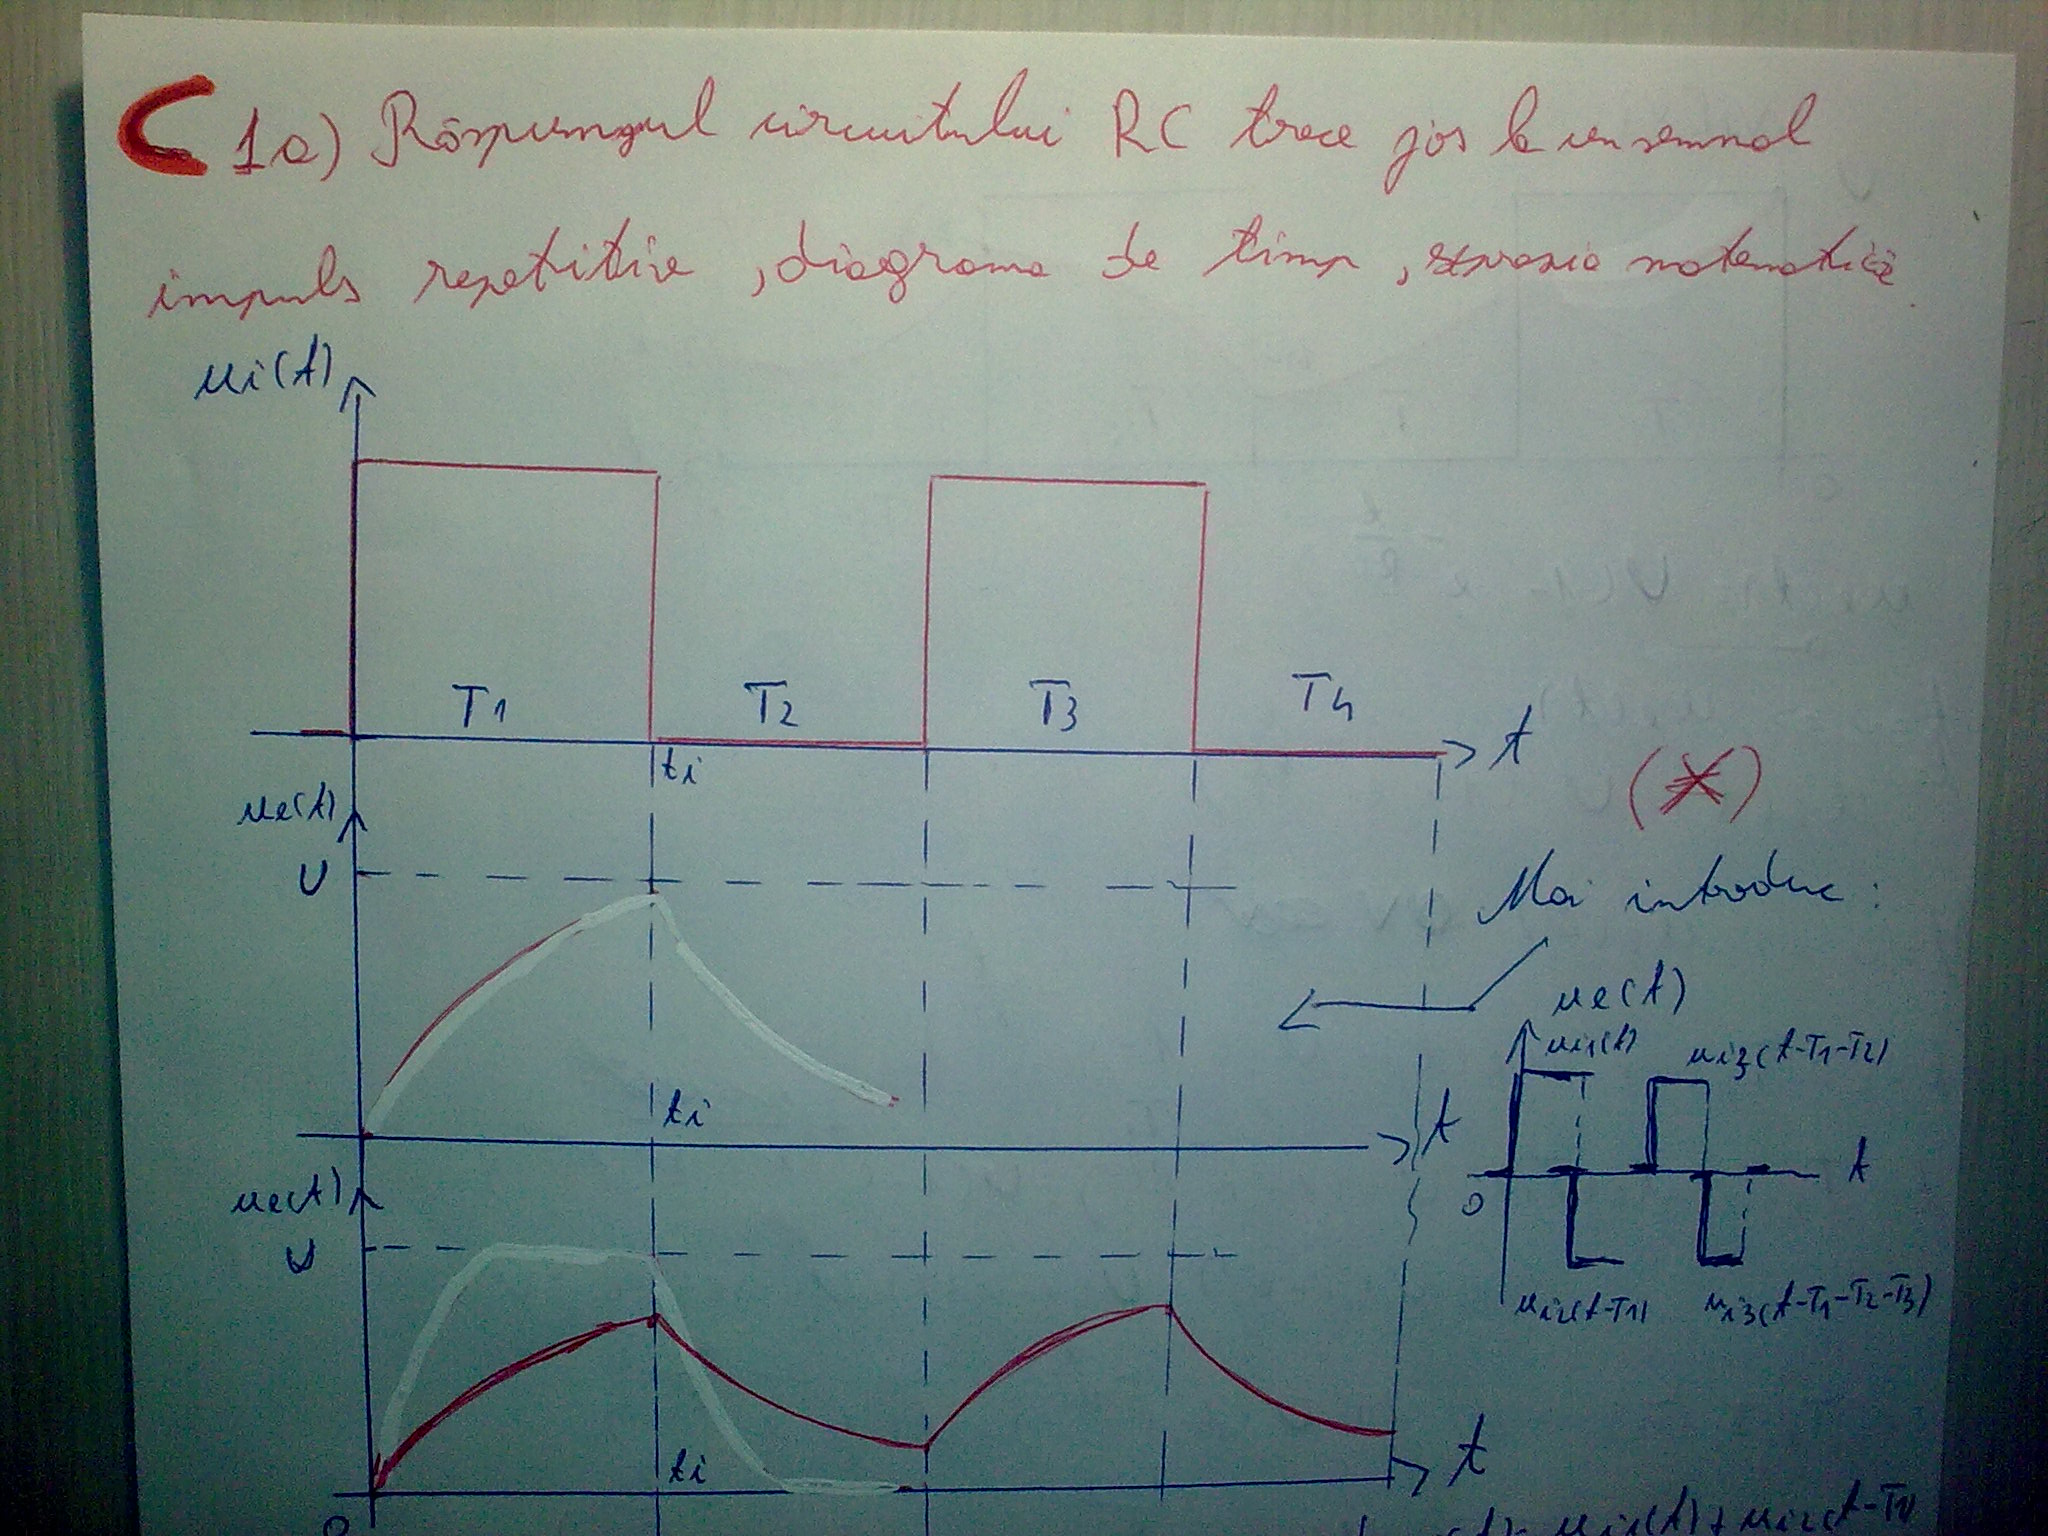 C 1a) Răspunsul circuitului RC trece jos la un semnal
impuls repetitive, diagrama de timp, expresia matematică
ui(t)
T1 T2 T3 T4
t
ti
(*)
ue(t)
U
Mai introduc:
ti
t
ue(t)
ui1(t)
ui3(t-T1-T2)
0
t
ui2(t-T1)
ui3(t-T1-T2-T3)
ue(t)
U
ti
t
0
(t)= ui1(t)+ui2(t-T1)